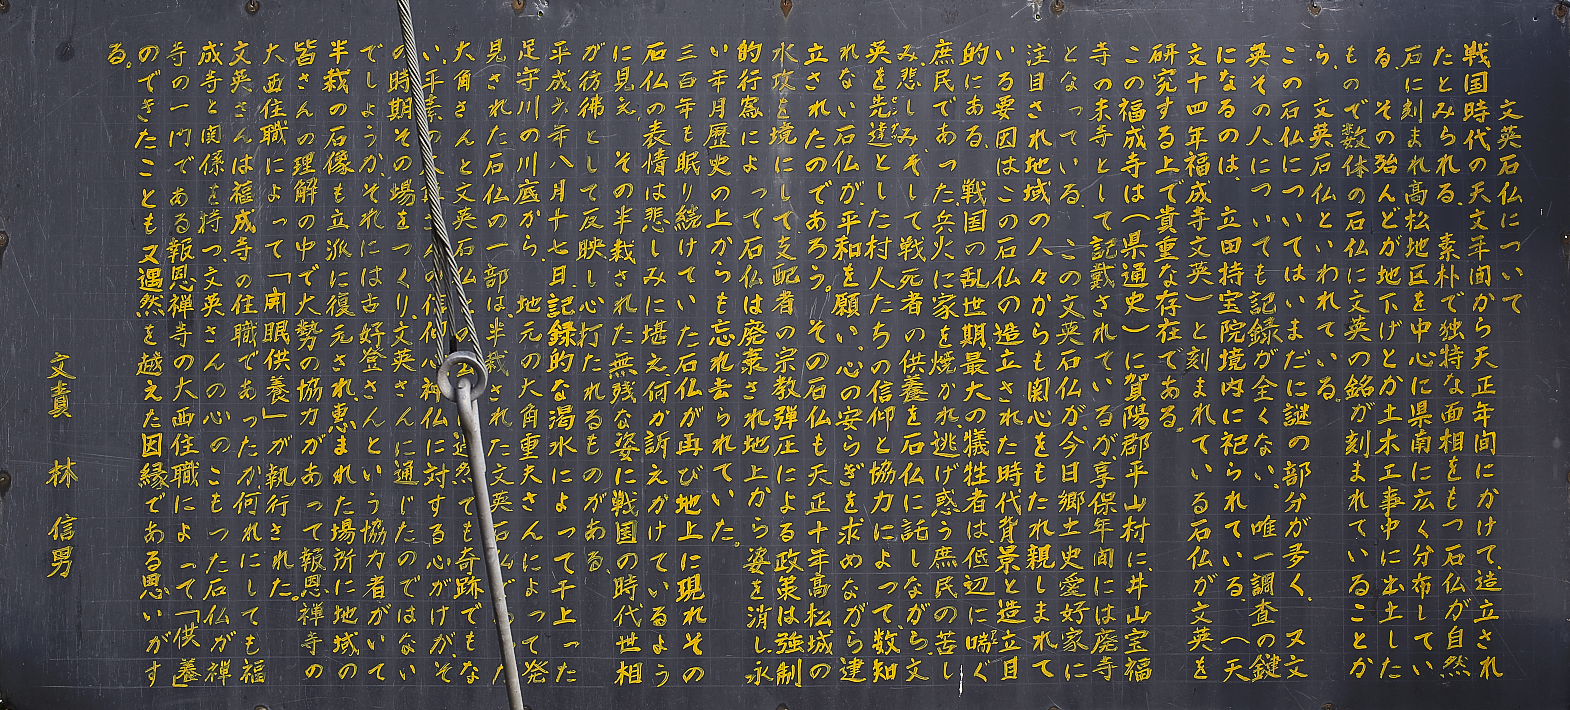 文英石仏について
戦国時代の天文年間から天正年間にかけて、造立され
たとみられる、素朴で独特な面相をもつ石仏が自然
石に刻まれ高松地区を中心に県南に広く分布してい
る。その殆んどが地下げとか土木工事中に出土した
もので数体の石仏に文英の銘が刻まれていることか
ら、文英石仏といわれている。
この石仏についてはいまだに謎の部分が多く、又文
英その人についても記録が全くない、唯一調査の鍵
になるのは、立田持宝院境内に祀られている、(天
文十四年福成寺文英)と刻まれている石仏が文英を
研究する上で貴重な存在である。
この福成寺は(県通史)に賀陽郡平山村に、井山宝福
寺の末寺として記載されているが、享保年間には廃寺
となっている。この文英石仏が、今日郷土史愛好家に
注目され地域の人々からも関心をもたれ親しまれて
いる要因はこの石仏の造立された時代背景と造立目
的にある、戦国の乱世期、最大の犠牲者は、低辺に喘ぐ
庶民であった、兵火に家を焼かれ、逃げ惑う庶民の苦し
み、悲しみ、そして戦死者の供養を石仏に託しながら、文
英を先達とした村人たちの信仰と協力によって、数知
れない石仏が、平和を願い、心の安らぎを求めながら建
立されたのであろう。その石仏も天正十年高松城の
水攻を境にして支配者の宗教弾圧による政策は強制
的行為によって石仏は廃棄され地上から姿を消し、永
い年月歴史の上からも忘れ去られていた。
三百年も眠り続けていた石仏が再び地上に現れその
石仏の表情は悲しみに堪え何か訴えかけているよう
に見え、その半裁された無残な姿に戦国の時代世相
が彷彿として反映し心打たれるものがある。
平成六年八月十七日、記録的な渇水によって干上った
足守川の川底から、地元の大角重夫さんによって発
見された石仏の一部は、半裁された文英石仏で
大角さんと文英石仏の 仏は遇然でも奇跡でもな
い、平素の大 さんの信仰心神仏に対する心がけが、そ
の時期その場をつくり、文英さんに通じたのではない
でしょうか、それには古好登さんという協力者がいて
半裁の石像も立派に復元され、恵まれた場所に地域の
皆さんの理解の中で大勢の協力があって報恩禅寺の
大西住職によって「開眼供養」が執行された。
文英さんは福成寺の住職であったか何れにしても福
成寺と関係を持つ、文英さんの心のこもった石仏が禅
寺の一門である報恩禅寺の大西住職によって「供養」
のできたことも又遇然を越えた因縁である思いがす
る。
文責 林 信男